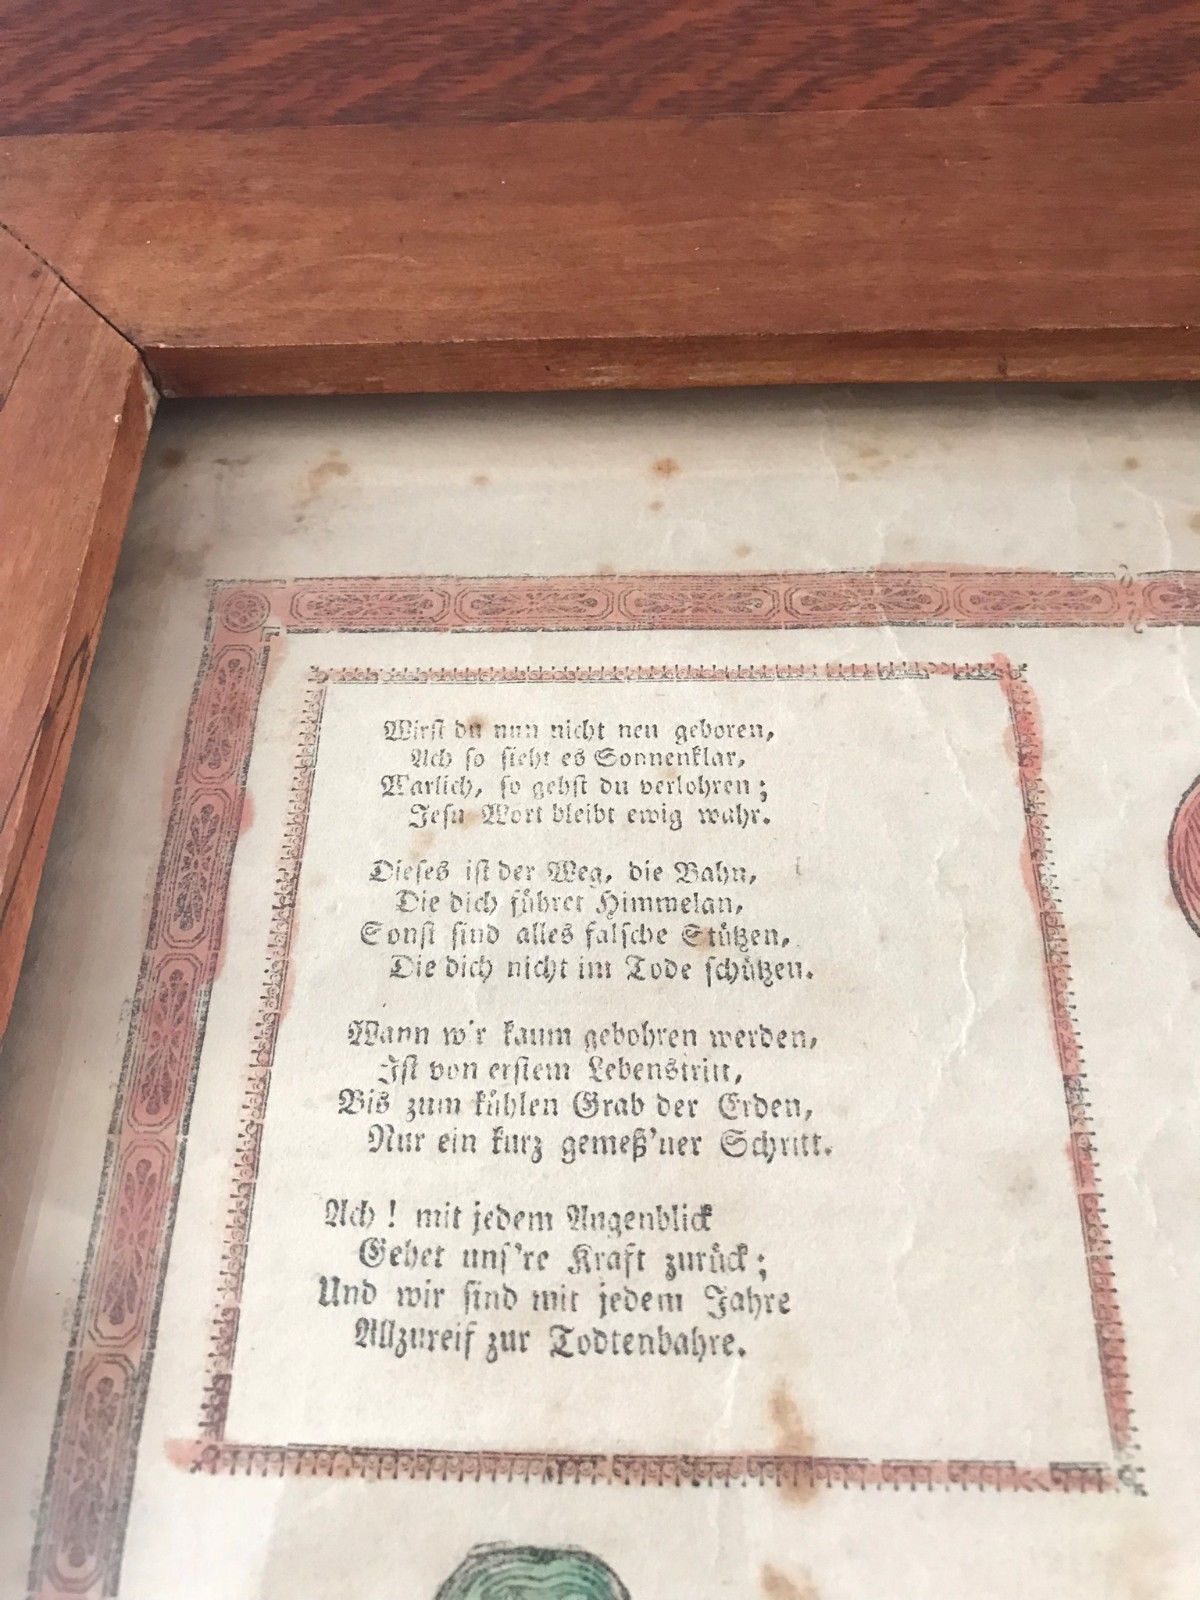 Wirst du nun nicht neu geboren,
Ach so sieht es Sonnenklar,
Warlich, so gehst du verlohren;
Jesu Wort bleibt ewig wahr.
Dieses ist der Weg, die Bahn,
Die dich führet Himmelan,
Sonst sind alles falsche Stützen,
Die dich nicht im Tode schützen.
Wann w'r kaum gebohren werden,
Ist von erstem Lebenstritt,
Bis zum kühlen Grab der Erden,
Nur ein kurz gemeß'ner Schritt.
Ach! mit jedem Augenblick
Gehet uns're Kraft zurück;
Und wir sind mit jedem Jahre
Allzureif zur Todtenbahre.